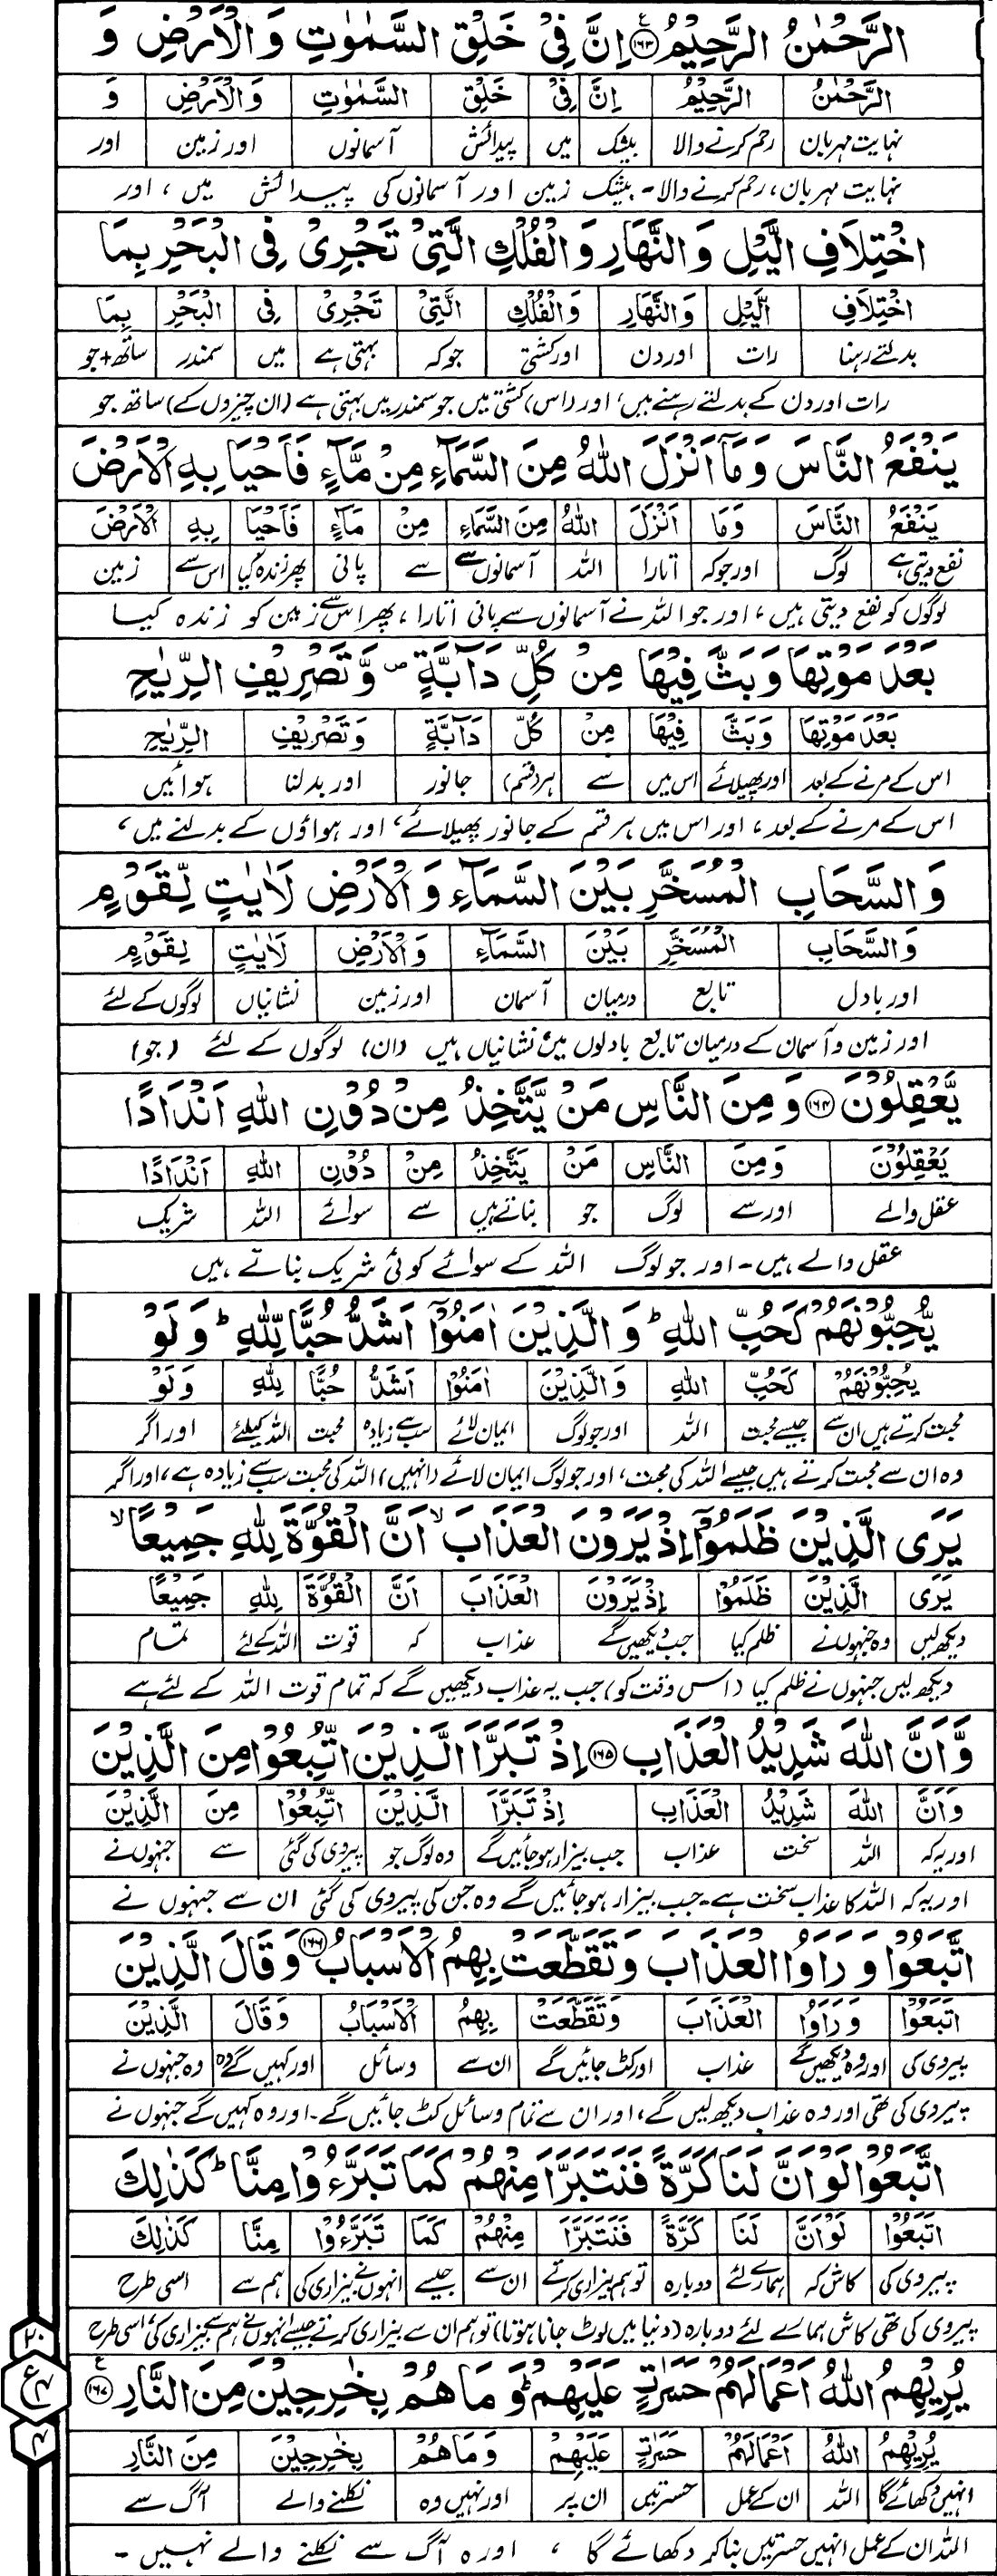 الرَّحْمٰنُ الرَّحِيْمُ ۝۱۶۳ اِنَّ فِیْ خَلْقِ السَّمٰوٰتِ وَالْاَرْضِ وَ
الرَّحْمٰنُ الرَّحِيْمُ اِنَّ فِیْ خَلْقِ السَّمٰوٰتِ وَالْاَرْضِ وَ
نہایت مہربان رحم کرنے والا بیشک میں پیدائش آسمانوں اور زمین اور
نہایت مہربان، رحم کرنے والا۔ بیشک زمین اور آسمانوں کی پیدائش میں، اور
اخْتِلَافِ الَّيْلِ وَالنَّهَارِ وَالْفُلْكِ الَّتِیْ تَجْرِیْ فِی الْبَحْرِ بِمَا
اخْتِلَافِ الَّيْلِ وَالنَّهَارِ وَالْفُلْكِ الَّتِیْ تَجْرِیْ فِی الْبَحْرِ بِمَا
بدلتے رہنا رات اور دن اور کشتی جو کہ بہتی ہے میں سمندر ساتھ+جو
رات اور دن کے بدلتے رہنے میں، اور (اس) کشتی میں جو سمندر میں بہتی ہے (ان چیزوں کے) ساتھ جو
يَنْفَعُ النَّاسَ وَمَآ اَنْزَلَ اللّٰهُ مِنَ السَّمَآءِ مِنْ مَّآءٍ فَاَحْيَا بِهِ الْاَرْضَ
يَنْفَعُ النَّاسَ وَمَا اَنْزَلَ اللّٰهُ مِنَ السَّمَآءِ مِنْ مَآءٍ فَاَحْيَا بِهِ الْاَرْضَ
نفع دیتی ہے لوگ اور جو کہ اتارا اللہ آسمانوں سے سے پانی پھر زندہ کیا اس سے زمین
لوگوں کو نفع دیتی ہیں، اور جو اللہ نے آسمانوں سے پانی اتارا، پھر اس سے زمین کو زندہ کیا
بَعْدَ مَوْتِهَا وَبَثَّ فِيْهَا مِنْ كُلِّ دَآبَّةٍ ۪ وَّتَصْرِيْفِ الرِّيٰحِ
بَعْدَ مَوْتِهَا وَبَثَّ فِيْهَا مِنْ كُلِّ دَآبَّةٍ وَتَصْرِيْفِ الرِّيٰحِ
اس کے مرنے کے بعد اور پھیلائے اس میں سے ہر (قسم) جانور اور بدلنا ہوائیں
اس کے مرنے کے بعد، اور اس میں ہر قسم کے جانور پھیلائے، اور ہواؤں کے بدلنے میں،
وَالسَّحَابِ الْمُسَخَّرِ بَيْنَ السَّمَآءِ وَالْاَرْضِ لَاٰيٰتٍ لِّقَوْمٍ
وَالسَّحَابِ الْمُسَخَّرِ بَيْنَ السَّمَآءِ وَالْاَرْضِ لَاٰيٰتٍ لِقَوْمٍ
اور بادل تابع درمیان آسمان اور زمین نشانیاں لوگوں کے لئے
اور زمین و آسمان کے درمیان تابع بادلوں میں نشانیاں ہیں (ان) لوگوں کے لئے (جو)
يَّعْقِلُوْنَ ۝۱۶۴ وَمِنَ النَّاسِ مَنْ يَّتَّخِذُ مِنْ دُوْنِ اللّٰهِ اَنْدَادًا
يَعْقِلُوْنَ وَمِنَ النَّاسِ مَنْ يَتَّخِذُ مِنْ دُوْنِ اللّٰهِ اَنْدَادًا
عقل والے اور سے لوگ جو بناتے ہیں سے سوائے اللہ شریک
عقل والے ہیں۔ اور جو لوگ اللہ کے سوائے کوئی شریک بناتے ہیں
يُّحِبُّوْنَهُمْ كَحُبِّ اللّٰهِ ؕ وَالَّذِيْنَ اٰمَنُوْٓا اَشَدُّ حُبًّا لِّلّٰهِ ؕ وَلَوْ
يُحِبُّوْنَهُمْ كَحُبِّ اللّٰهِ وَالَّذِيْنَ اٰمَنُوْا اَشَدُّ حُبًّا لِلّٰهِ وَلَوْ
محبت کرتے ہیں ان سے جیسے محبت اللہ اور جو لوگ ایمان لائے سب سے زیادہ محبت اللہ کیلئے اور اگر
وہ ان سے محبت کرتے ہیں جیسے اللہ کی محبت، اور جو لوگ ایمان لائے (انہیں) اللہ کی محبت سب سے زیادہ ہے، اور اگر
يَرَى الَّذِيْنَ ظَلَمُوْٓا اِذْ يَرَوْنَ الْعَذَابَ ۙ اَنَّ الْقُوَّةَ لِلّٰهِ جَمِيْعًا ۙ
يَرَى الَّذِيْنَ ظَلَمُوْا اِذْ يَرَوْنَ الْعَذَابَ اَنَّ الْقُوَّةَ لِلّٰهِ جَمِيْعًا
دیکھ لیں وہ جنہوں نے ظلم کیا جب دیکھیں گے عذاب کہ قوت اللہ کے لئے تمام
دیکھ لیں جنہوں نے ظلم کیا (اس وقت کو) جب یہ عذاب دیکھیں گے کہ تمام قوت اللہ کے لئے ہے
وَّاَنَّ اللّٰهَ شَدِيْدُ الْعَذَابِ ۝۱۶۵ اِذْ تَبَرَّاَ الَّذِيْنَ اتُّبِعُوْا مِنَ الَّذِيْنَ
وَاَنَّ اللّٰهَ شَدِيْدُ الْعَذَابِ اِذْ تَبَرَّاَ الَّذِيْنَ اتُّبِعُوْا مِنَ الَّذِيْنَ
اور یہ کہ اللہ سخت عذاب جب بیزار ہو جائیں گے وہ لوگ جو پیروی کی گئی سے جنہوں نے
اور یہ کہ اللہ کا عذاب سخت ہے۔ جب بیزار ہو جائیں گے وہ جن کی پیروی کی گئی ان سے جنہوں نے
اتَّبَعُوْا وَرَاَوُا الْعَذَابَ وَتَقَطَّعَتْ بِهِمُ الْاَسْبَابُ ۝۱۶۶ وَقَالَ الَّذِيْنَ
اتَّبَعُوْا وَرَاَوُا الْعَذَابَ وَتَقَطَّعَتْ بِهِمُ الْاَسْبَابُ وَقَالَ الَّذِيْنَ
پیروی کی اور وہ دیکھیں گے عذاب اور کٹ جائیں گے ان سے وسائل اور کہیں گے وہ وہ جنہوں نے
پیروی کی تھی اور وہ عذاب دیکھ لیں گے، اور ان سے تمام وسائل کٹ جائیں گے۔ اور وہ کہیں گے جنہوں نے
اتَّبَعُوْا لَوْ اَنَّ لَنَا كَرَّةً فَنَتَبَرَّاَ مِنْهُمْ كَمَا تَبَرَّءُوْا مِنَّا ؕ كَذٰلِكَ
اتَّبَعُوْا لَوْ اَنَّ لَنَا كَرَّةً فَنَتَبَرَّاَ مِنْهُمْ كَمَا تَبَرَّءُوْا مِنَّا كَذٰلِكَ
پیروی کی کاش کہ ہمارے لئے دوبارہ تو ہم بیزاری کرتے ان سے جیسے انہوں نے بیزاری کی ہم سے اسی طرح
پیروی کی تھی کاش ہمارے لئے دوبارہ (دنیا میں لوٹ جانا ہوتا) تو ہم ان سے بیزاری کرتے جیسے انہوں نے ہم سے بیزاری کی، اسی طرح
يُرِيْهِمُ اللّٰهُ اَعْمَالَهُمْ حَسَرٰتٍ عَلَيْهِمْ ؕ وَمَا هُمْ بِخٰرِجِيْنَ مِنَ النَّارِ ۝۱۶۷ ع
۲۰
ع
۴
۴
يُرِيْهِمُ اللّٰهُ اَعْمَالَهُمْ حَسَرٰتٍ عَلَيْهِمْ وَمَا هُمْ بِخٰرِجِيْنَ مِنَ النَّارِ
انہیں دکھائے گا اللہ ان کے عمل حسرتیں ان پر اور نہیں وہ نکلنے والے آگ سے
اللہ ان کے عمل انہیں حسرتیں بنا کر دکھائے گا، اور وہ آگ سے نکلنے والے نہیں۔